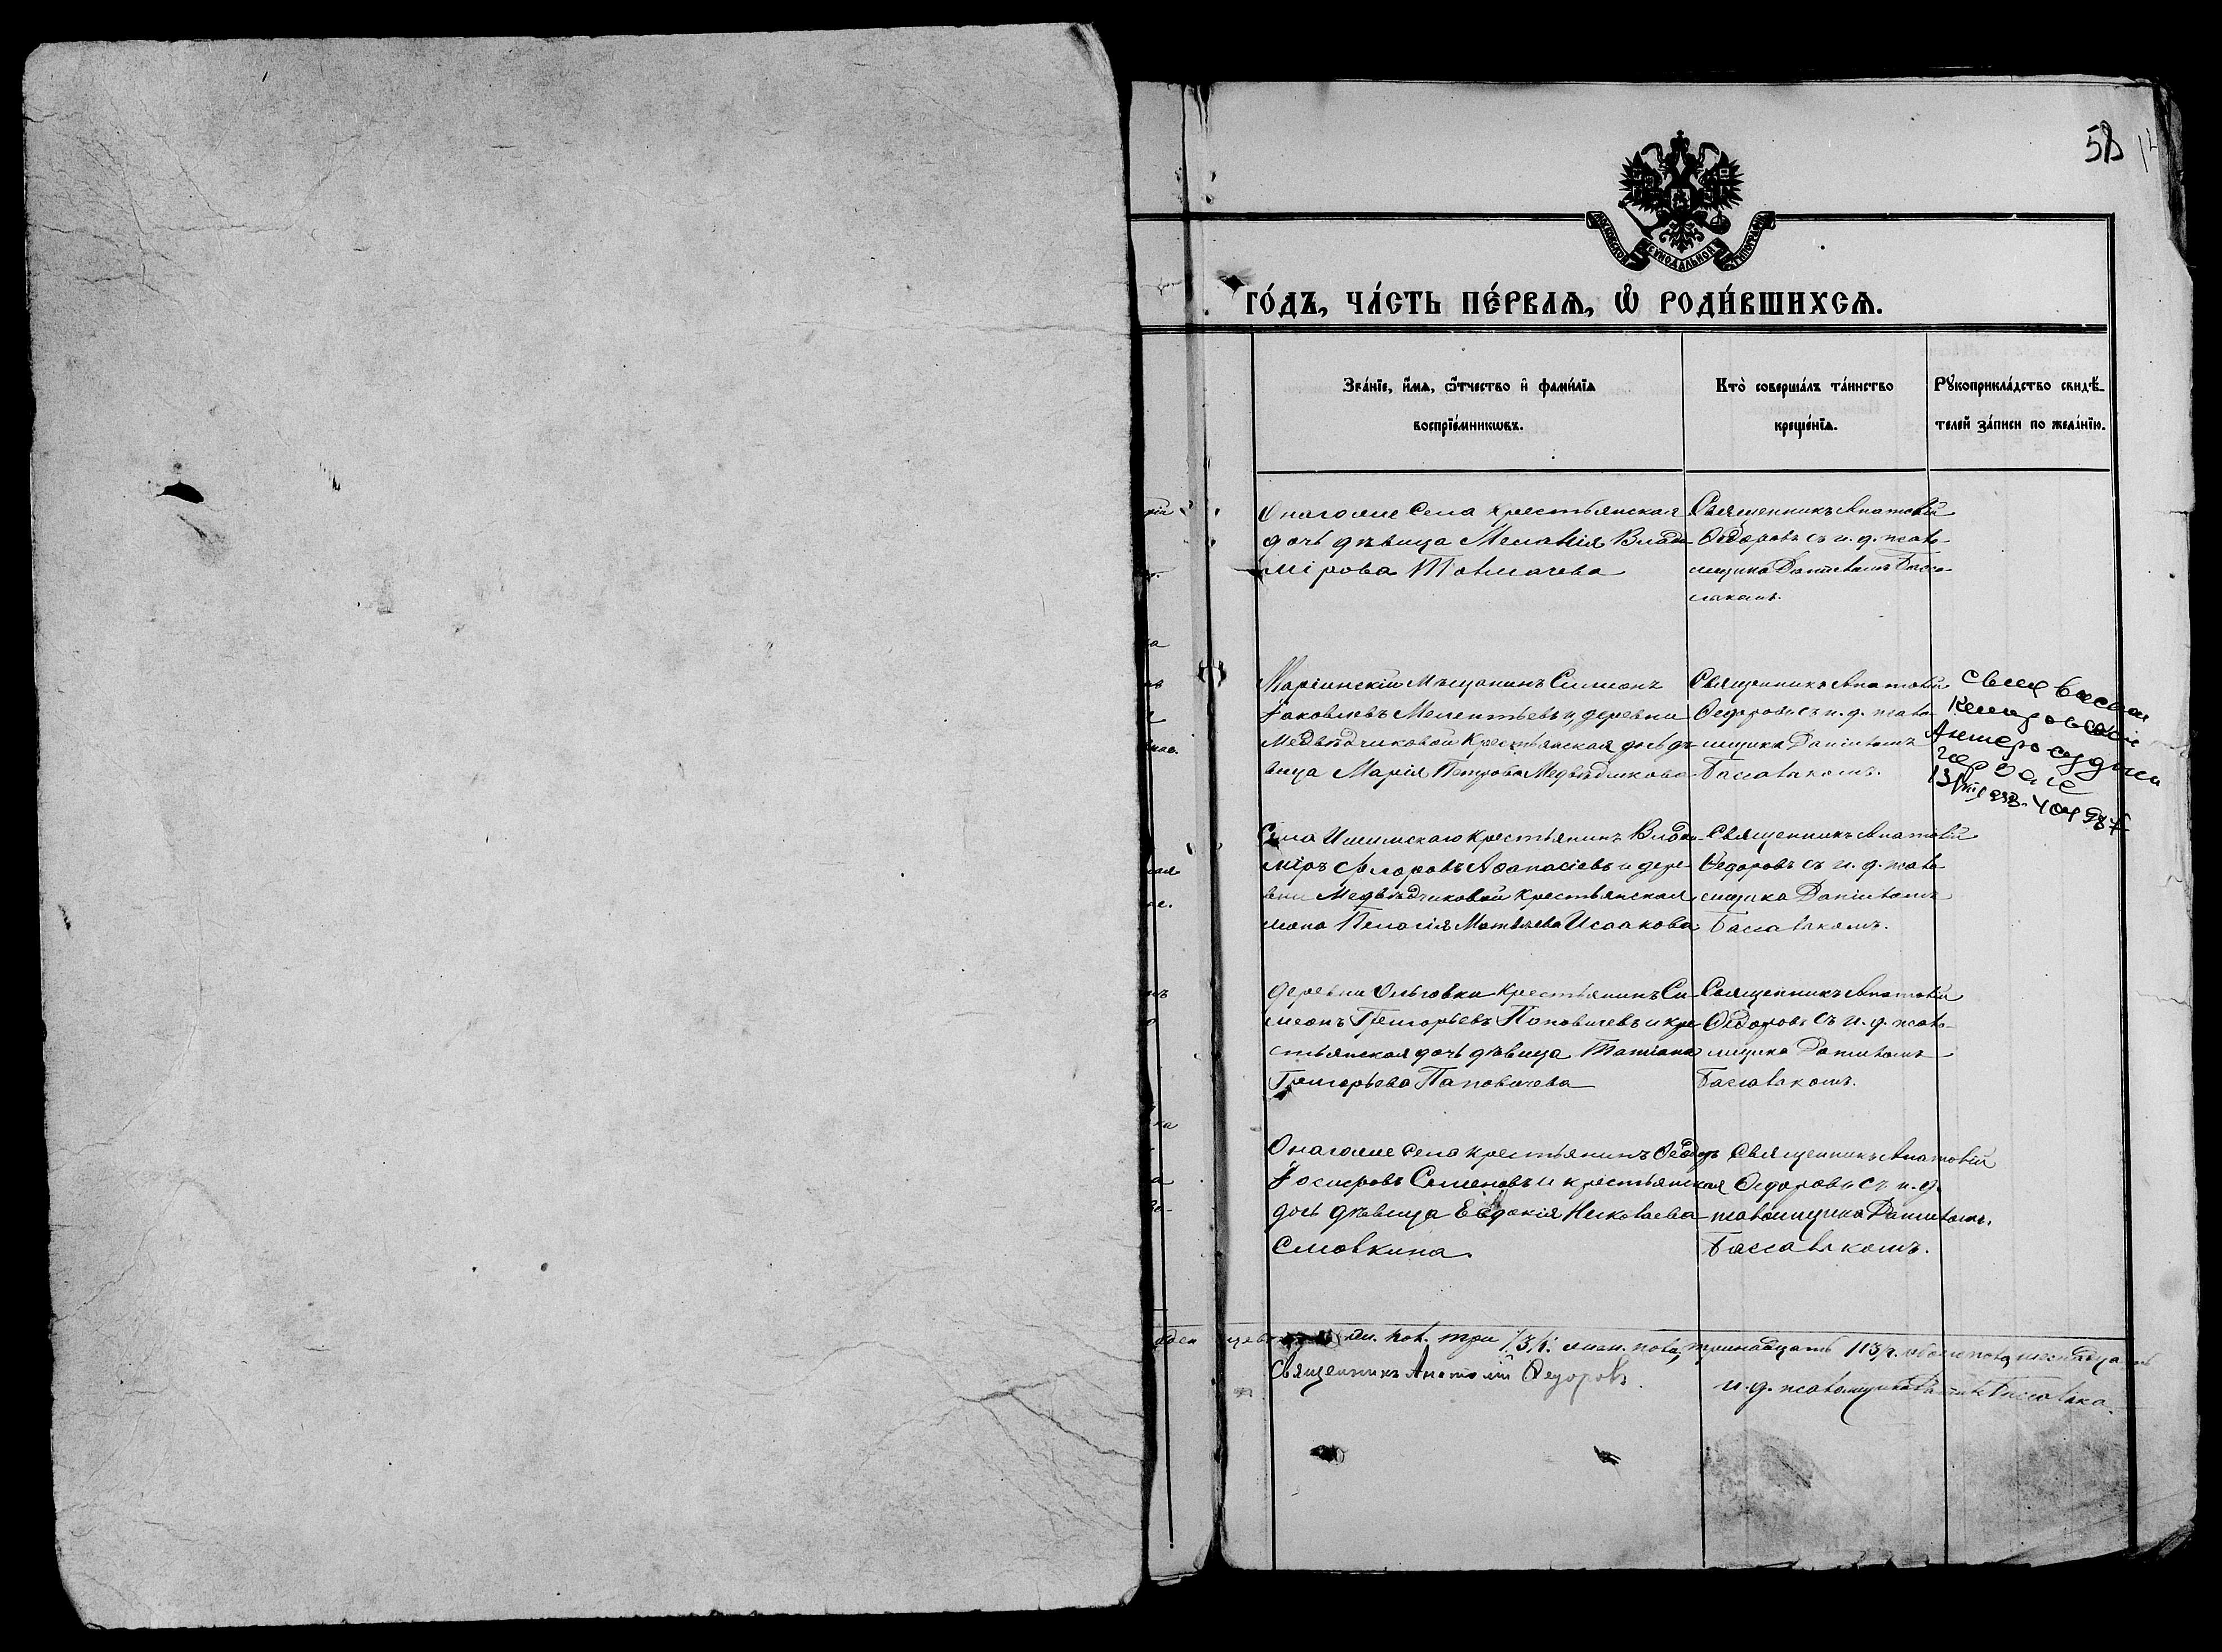 58
МОСКОВСКОЙ СѴНОДАЛЬНОЙ ТИПОГРАФІИ
ГО́ДЪ, ЧА́СТЬ ПЕ́РВАѦ, Ѡ҆ РОДИ́ВШИХСѦ.
Зва́нїе, и҆́мѧ, ѻ҆́тчество и҆ фами́лїѧ
воспрїе́мникѡвъ.
Кто̀ соверша́лъ та́инство
креще́нїѧ.
Рꙋкоприкла́дство свидѣ́-
телей за́писи по жела́нїю.
Онагоже села крестьянская
дочь дѣвица Меланія Влади-
мірова Толмачева
Священникъ Анатолій
Ѳедоровъ съ и. д. псало-
мщика Даніиломъ Басса-
лакомъ.
Маріинскій мѣщанинъ Симеонъ
Іаковлевъ Мелентьевъ и деревни
Медвѣдчиковой крестьянская дочь дѣ-
вица Марія Петрова Медвѣдчикова
Священникъ Анатолій
Ѳедоровъ съ и. д. псало-
мщика Даніиломъ
Бассалакомъ.
Села Ишимскаго крестьянинъ Влади-
міръ Флоровъ Аѳанасіевъ и дере-
вни Медвѣдчиковой крестьянская
жена Пелагія Матвѣева Исаакова
Священникъ Анатолій
Ѳедоровъ съ и. д. псало-
мщика Даніиломъ
Бассалакомъ.
деревни Ольговки крестьянинъ Си-
меонъ Григорьевъ Поповичевъ и кре-
стьянская дочь дѣвица Татіана
Григорьева Паповичева
Священникъ Анатолій
Ѳедоровъ съ и. д. псало-
мщика Даніиломъ
Бассалакомъ.
Онагоже села крестьянинъ Ѳеодоръ
Іосифовъ Семеновъ и крестьянская
дочь дѣвица Евдокія Николаева
Смовкина.
Священникъ Анатолій
Ѳедоровъ съ и. д.
псаломщика Даніиломъ
Бассалакомъ.
пол. три /3/: жен. пола, тринадцать /13/. обоего пола шестнадцать
Священникъ Анатолій Ѳедоровъ.
и. д. псаломщика Даніилъ Бассалака.